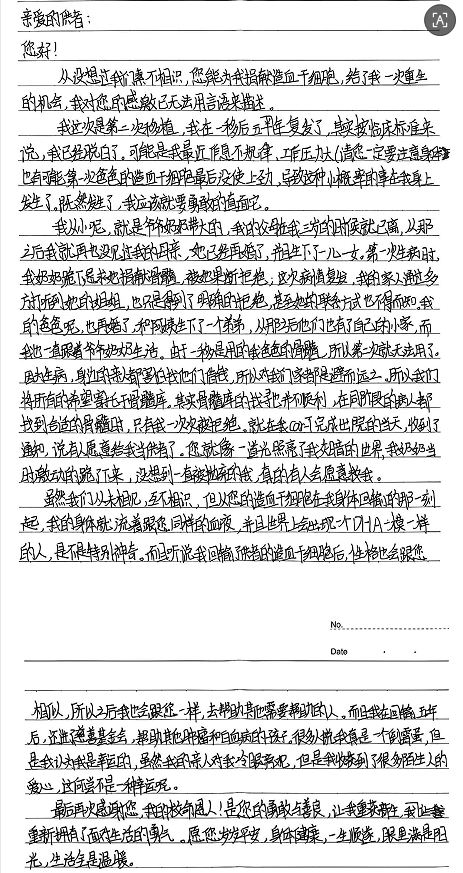 亲爱的供者:
您好!
从没想过我们素不相识,您能为我捐献造血干细胞,给了我一次重生
的机会,我对您的感激已无法用言语来描述。
我这次是第二次移植,我在一移后五年半复发了,其实按临床标准来
说,我已经脱白了。可能是我最近作息不规律,工作压力大(请您一定要注意身体)
也有可能第一次爸爸的造血干细胞最后没使上劲,导致这种小概率的事在我身上
发生了。既然发生了,我应该就要勇敢的直面它。
我从小呢,就是爷爷奶奶带大的,我的父母在我三岁的时候就已离,从那
之后我就再也没见过我的母亲,她已经再婚了,并且生下了一儿一女。第一次生病时,
我奶奶跪下是求她捐献骨髓,被她果断拒绝;这次病情复发,我的家人通过多
方打听到她的姐姐,也只是得到了明确的拒绝,甚至她的联系方式也不得而知。我
的爸爸呢,也再婚了,和阿姨生下了一个弟弟,从那之后他们也有了自己的小家,而
我也一直跟着爷爷奶奶生活。由于一移是用的我爸爸的骨髓,所以第二次就无法用了。
因为生病,身边的亲戚都害怕我他们借钱,所以对我们家都是避而远之。所以我们
将所有的希望寄托于骨髓库。其实骨髓库的找寻也并不顺利,在同期的病人都
找到合适的骨髓时,只有我一次次被拒绝。就在去完成出院的当天,收到了
通知,说有人愿意给我当供者了。您就像一道光照亮了我灰暗的世界,我奶奶当
时激动的跪了下来,没想到一直被抛弃的我,真的有人会愿意救我。
虽然我们从未相见,互不相识,但从您的造血干细胞在我身体回输的那一刻
起,我的身体就流着跟您同样的血液,并且世界上会出现一个DNA一模一样
的人,是不是特别神奇。而且听说我回输了供者的造血干细胞后,性格也会跟您
No.
Date
相似,所以之后我也会跟您一样,去帮助其他需要帮助的人。而且我在回输五年
后,还进了慈善基金会,帮助其他肿瘤和白血病的孩子。很多人说我真是一个倒霉蛋,但
是我认为我是幸运的,虽然我的亲人对我冷眼旁观,但是我收到了很多陌生人的
爱心,这何尝不是一种幸运呢。
最后再次感谢您,我的救命恩人!是您的勇敢与善良,让我重获新生,让我
重新拥有了面对生活的勇气。愿您岁岁平安,身体健康,一生顺遂,眼里满是阳
光,生活全是温暖。